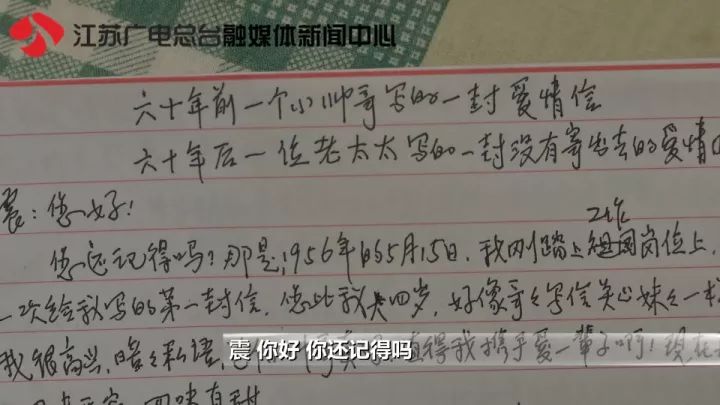 江苏广电总台融媒体新闻中心
六十年前一个小帅哥写的一封爱情信
六十年后一位老太太写的一封没有寄出去的爱情
震：您好！
工作
您还记得吗？那是1956年的5月15日，我刚踏上祖国岗位上，
一次给我写的第一封信，您比我大四岁，好像哥々写信关心妹々一
我很高兴，暗々私语，
值得我携手爱一辈子啊！现在
震 你好 你还记得吗
回味有甜